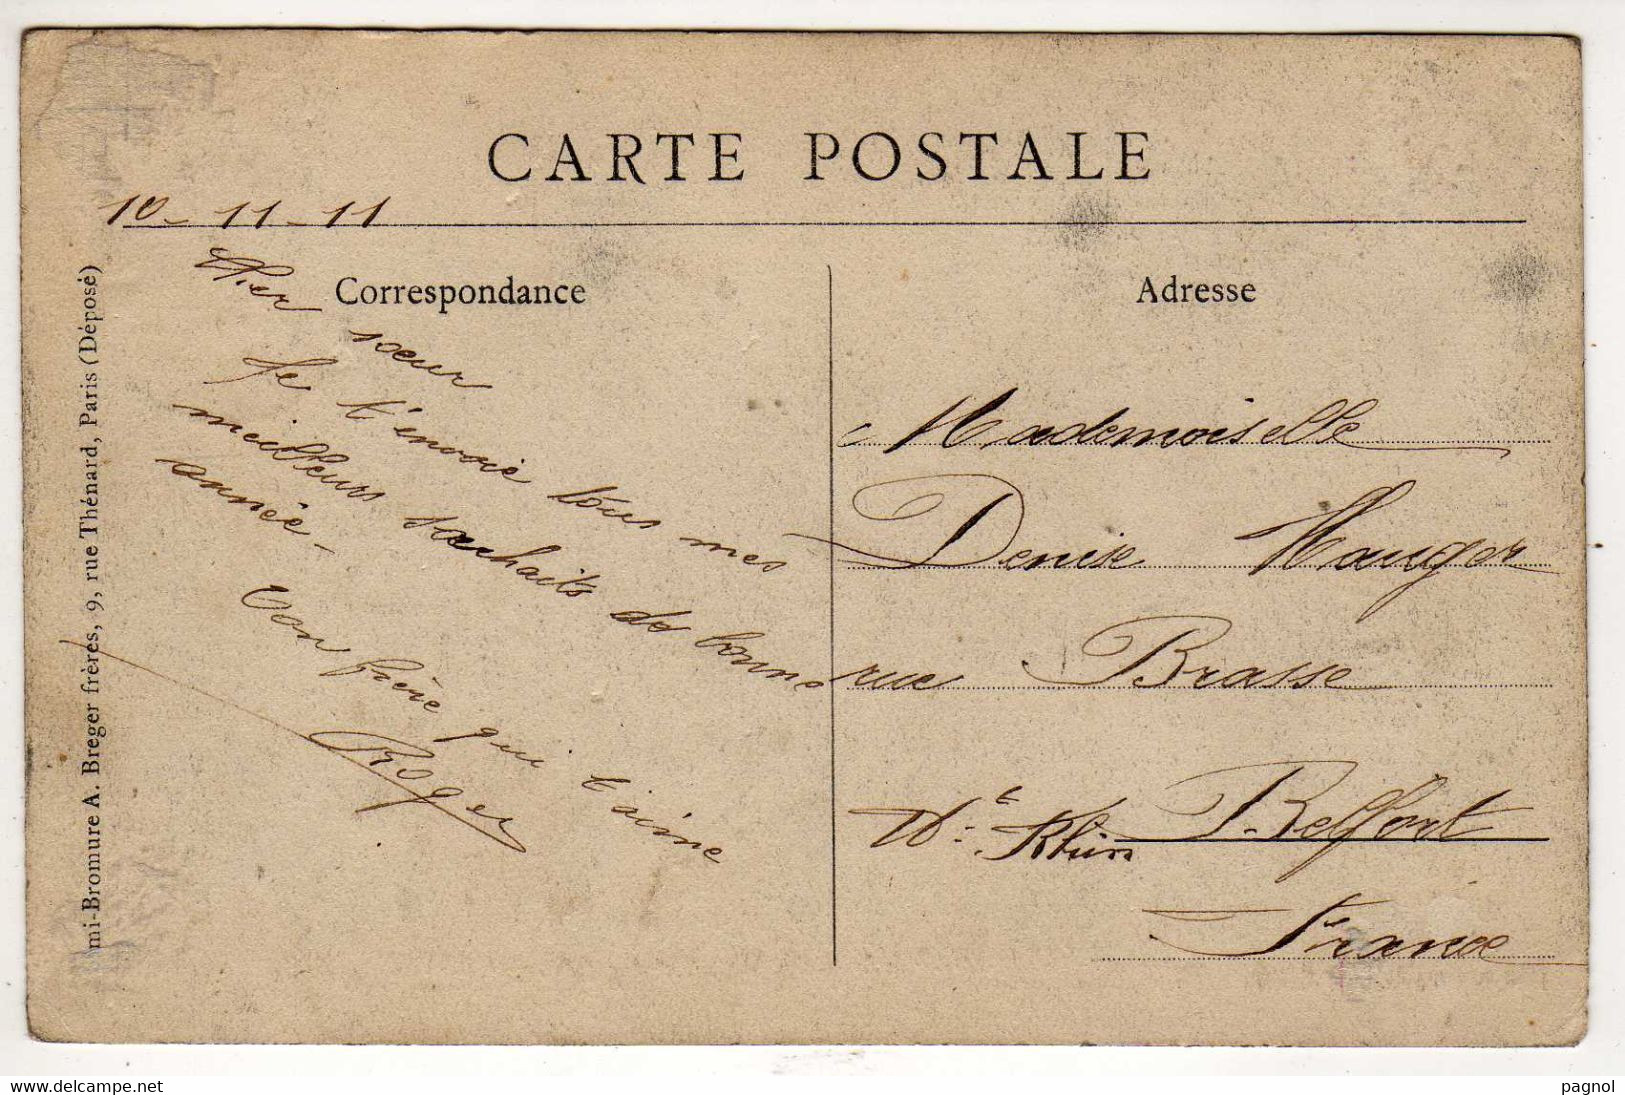 CARTE POSTALE
10-11-11
Correspondance
Cher
soeur
Je t'envoie tous mes
meilleurs souhaits de bonne
année-
Ton frère qui t'aime
Roger
Adresse
Mademoiselle
Denise Mauger
rue Brasse
Ht Rhin Belfort
France
mi-Bromure A. Breger frères, 9, rue Thénard, Paris (Déposé)
www.delcampe.net
pagnol